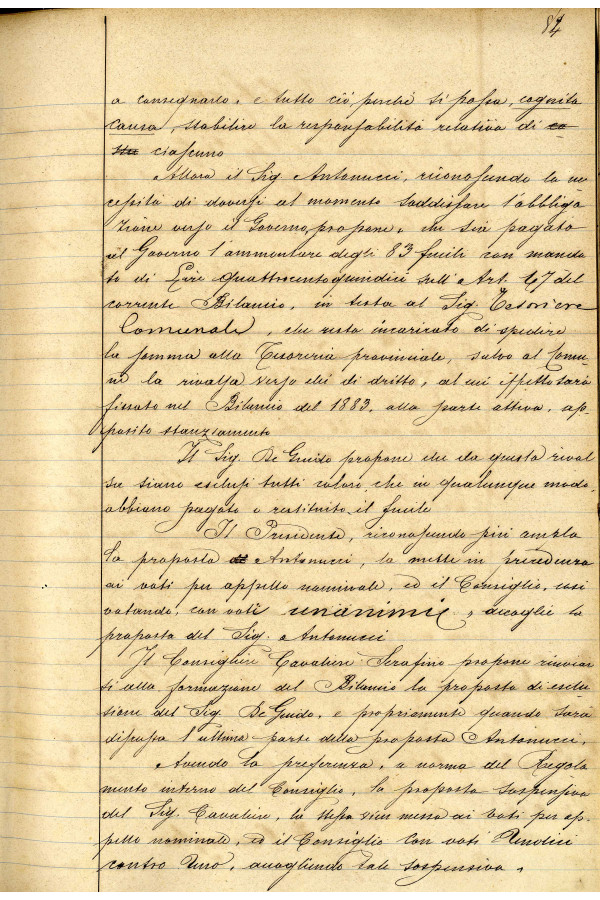 84
a consegnarlo, e tutto ciò, perchè si possa, cognita
causa, stabilire la responsabilità relativa di co
stu ciascuno
Allora il Sig Antonucci, riconoscendo la ne
cessità di doversi al momento soddisfare l'obbliga
zione verso il Governo, propone, che sia pagato
al Governo l'ammontare degli 83 fucili con manda
to di Lire quattrocentoquindici sull'Art. 47 del
corrente Bilancio, in testa al Sig. Tesoriere
Comunale, che resta incaricato di spedire
la somma alla Tesoreria provinciale, salvo al Comu-
ne la rivalsa verso chi di dritto, al cui effetto sarà
fissato nel Bilancio del 1883, alla parte attiva, ap-
posito stanziamento
Il Sig. De Guido propone che da questa rival
sa siano esclusi tutti coloro, che in qualunque modo,
abbiano pagato o restituito il fucile
Il Presidente, riconoscendo più ampla
la proposta Antonucci, la mette in precedenza
ai voti per appello nominale, ed il Consiglio, così
votando, con voti unanimi, accoglie la
proposta del Sig. Antonucci
Il Consigliere Cavaliere Serafino propone rinviar
si alla formazione del Bilancio la proposta di esclu
sione del Sig. De Guido, e propriamente quando sarà
discussa l'ultima parte della proposta Antonucci.
Avendo la preferenza, a norma del Regola
mento interno del Consiglio, la proposta sospensiva
del Sig. Cavaliere, la stessa vien messa ai voti per ap-
pello nominale, ed il Consiglio con voti Undici
contro Uno, accogliendo tale sospensiva,